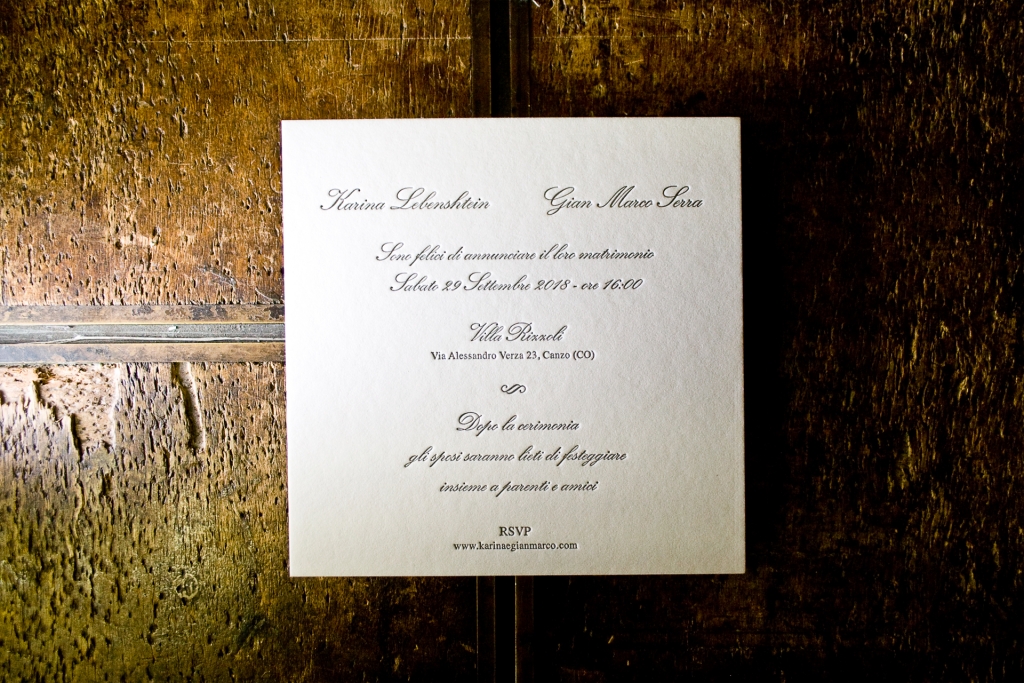 Karina Lebenshtein Gian Marco Serra
Sono felici di annunciare il loro matrimonio
Sabato 29 Settembre 2018 - ore 16:00
Villa Rizzoli
Via Alessandro Verza 23, Canzo (CO)
Dopo la cerimonia
gli sposi saranno lieti di festeggiare
insieme a parenti e amici
RSVP
www.karinaegianmarco.com